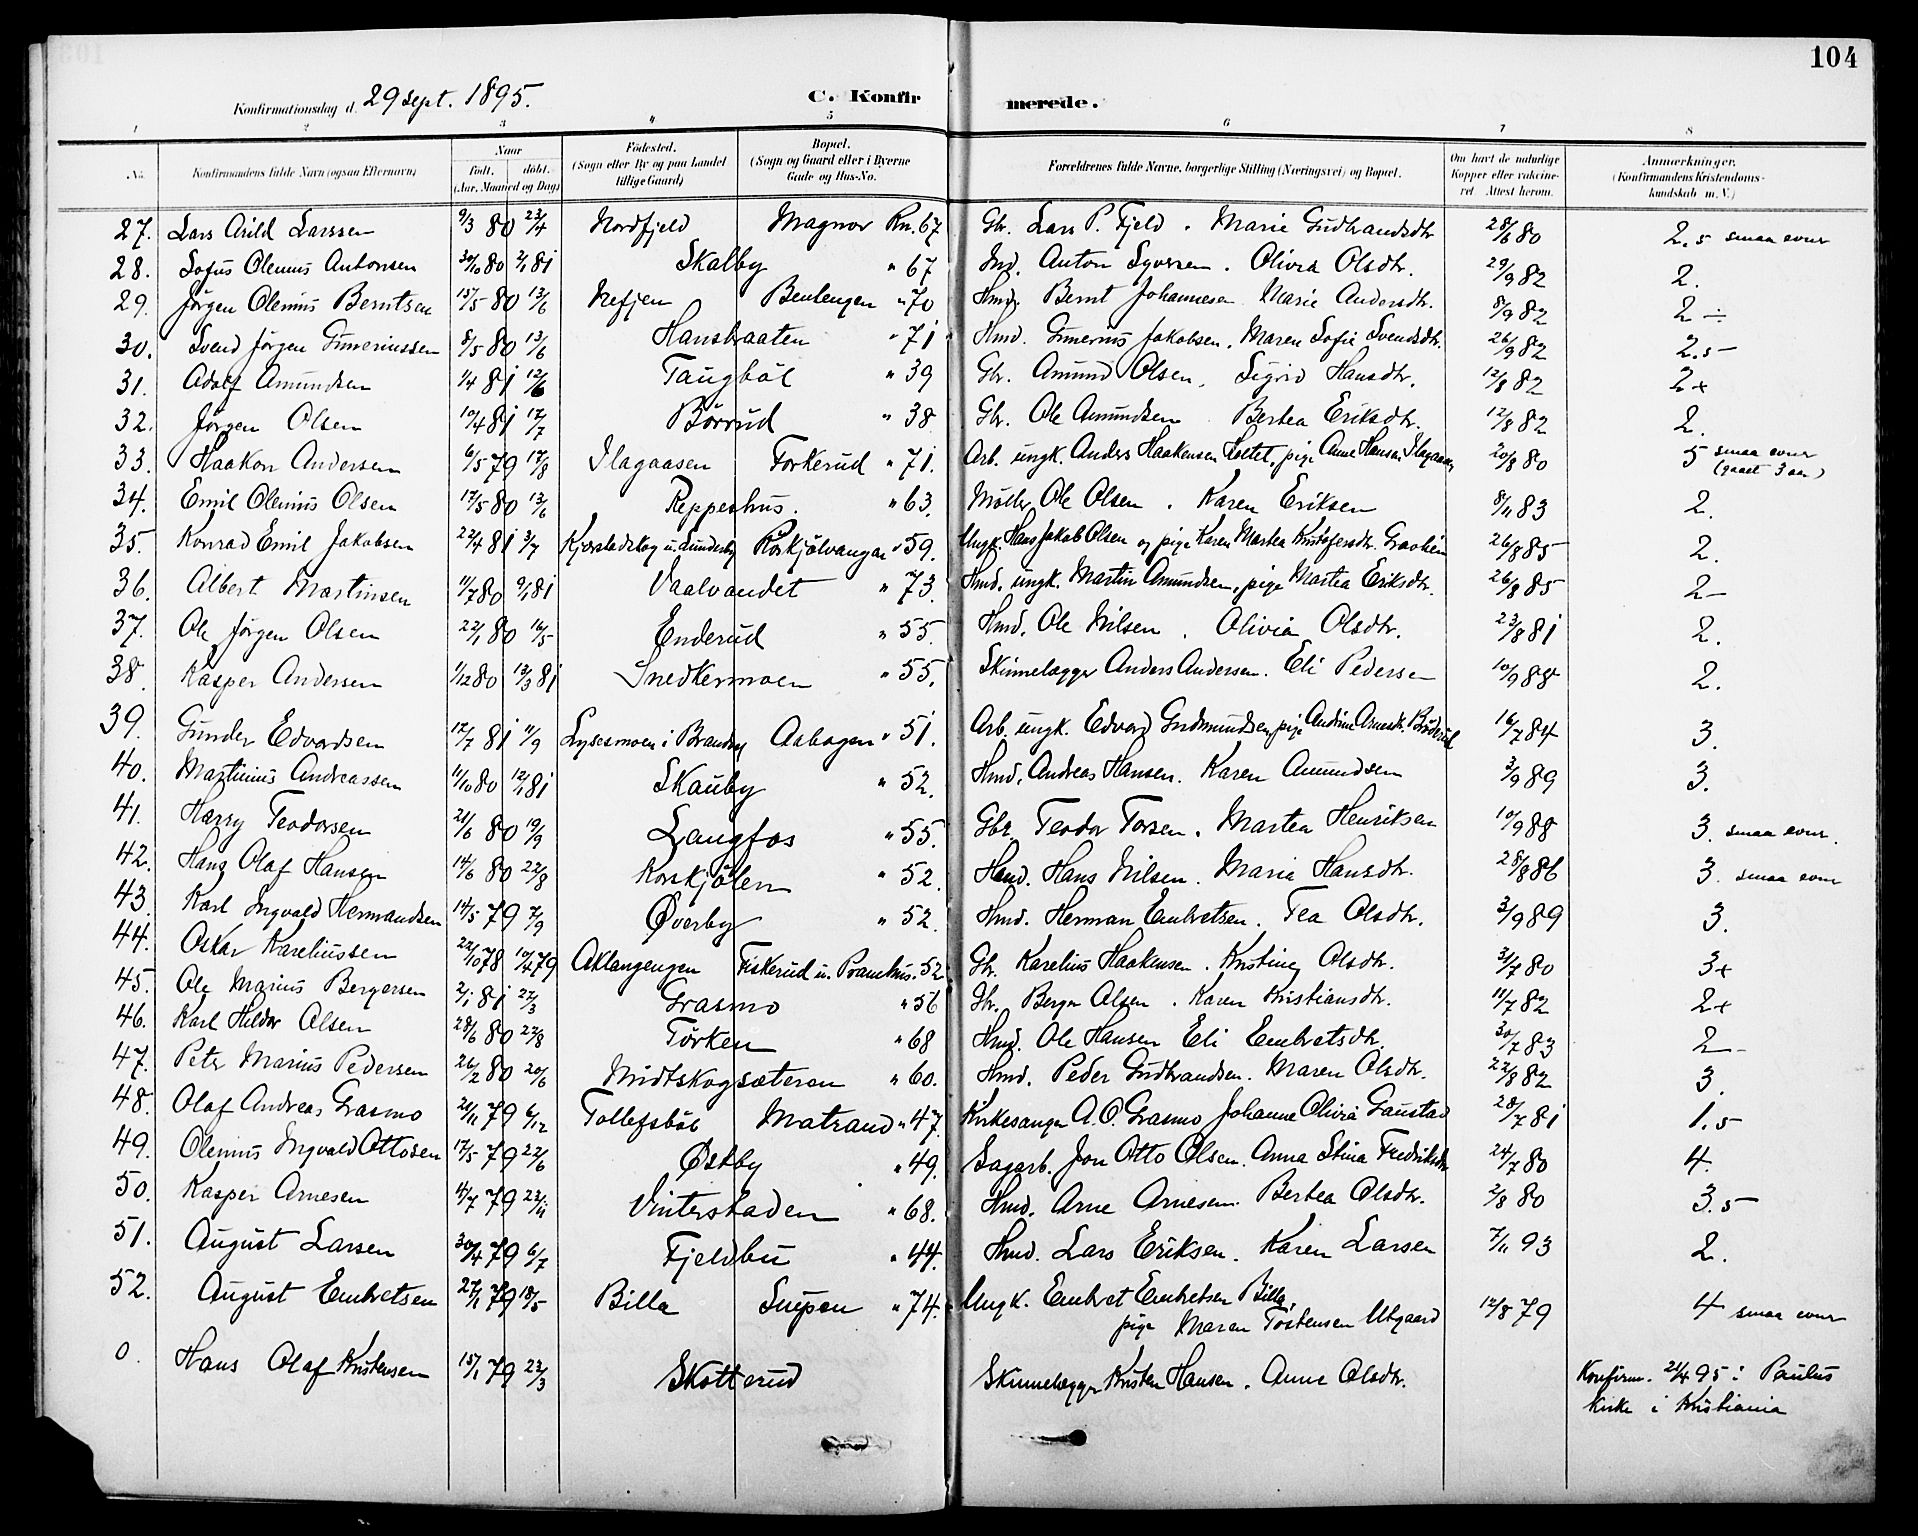 104
Konfirmationsdag d. 29 sept. 1895. C. Konfir merede.
1 2 3 4 5 6 7 8
No. Konfirmandens fulde Navn (ogsaa Efternavn) Naar født, døbt. (Aar, Maaned og Dag) Fødested. (Sogn eller By og paa Landet tillige Gaard) Bopæl. (Sogn og Gaard eller i Byerne Gade og Hus-No. Forældrenes fulde Navne, borgerlige Stilling (Næringsvei) og Bopæl. Om havt de naturlige Kopper eller vaccineret. Attest herom. Anmærkninger. (Konfirmandens Kristendomskundskab m. V.)
27. Lars Arild Larssen 9/3 80 23/4 Nordfjeld Magnor Rn. 67 Gbr. Lars P. Fjeld. Marie Gudbrandsdtr 28/6 80 2.5 smaa evner
28. Sofus Olenius Antonsen 30/10 80 2/1 81 Skalby " 67 Ind. Anton Syversen. Olivia Olsdtr. 29/9 82 2.
29. Jörgen Olenius Berntsen 15/5 80 13/6 Nefjen " 70 Hmd. Bernt Johannesen Marie Andersdtr. 8/9 82 2 ÷
30. Svend Jörgen Guneriussen 8/5 80 13/6 Hansbraaten " 71 Hmd. Gunerius Jakobsen. Maren Sofie Svendsdtr. 26/9 82 2.5
31. Adolf Amundsen 1/4 81 12/6 Taugböl " 39 Gbr. Amund Olsen. Sigrid Hansdtr. 12/8 82 2+
32. Jörgen Olsen 10/4 81 17/7 Börrud " 38 Gbr. Ole Amundsen Bertea Eriksdtr. 12/8 82 2.
33. Haakon Andersen 6/5 79 17/8 Ilagaasen Torkerud " 71. Arb. ungk. Anders Haakensen Holtet, pige Anne Hansen Ilagaasen 20/8 80 5 smaa evner (gaaet 3 aar)
34. Emil Olenius Olsen 17/5 80 13/6 Reppeshus. " 63. Möller Ole Olsen. Karen Eriksen 8/11 83 2.
35. Konrad Emil Jakobsen 22/4 81 3/7 " 59. Ungk. Hans Jakob Olsen og pige Karen Martea Kristofersdtr. 26/8 85 2.
36. Albert Martinsen 11/7 80 9/1 81 Vaalvandet " 73. Hmd. ungk. Martin Amundsen, pige Martea Eriksdtr. 26/8 85 2-
37. Ole Jörgen Olsen 22/1 80 16/5 Enderud " 55. Hmd. Ole Nilsen. Olivia Olsdtr. 23/8 81 2.
38. Kasper Andersen 1/12 80 13/3 81 Snedkermoen " 55. Skinnelægger Anders Andersen. Eli Pedersen 10/9 88 2.
39. Gunder Edvardsen 17/7 81 11/9 Lysesmoen i Brandv. Aabogen " 51. Arb. ungk. Edvard Gudmundsen, pige Andrine Arnesdt. 16/7 84 3.
40. Martinius Andreassen 11/10 80 12/1 81 Skauby " 52. Hmd. Andreas Hansen. Karen Amundsen 3/9 89 3.
41. Harry Teodorsen 21/6 80 19/9 Langfos " 55. Gbr. Teodor Torsen. Martea Henriksen 10/9 88 3. smaa evner.
42. Hans Olaf Hansen 14/6 80 22/8 Korskjölen " 52. Hmd. Hans Nilsen. Marie Hansdtr. 28/8 86 3. smaa evner
43. Karl Ingvald Hermandsen 14/5 79 7/9 Øverby " 52. Hmd. Herman Embretsen. Tea Olsdtr. 3/9 89 3.
44. Oskar Kareliussen 22/10 78 10/4 79 Aklangengen Fiskerud u. Pramhus. 52 Gbr. Karelius Haakensen. Kristine Olsdtr. 31/7 80 3+
45. Ole Marius Bergersen 2/1 81 27/3 Grasmo " 56 Gbr. Berger Olsen. Karen Kristiansdtr. 11/7 82 2+
46. Karl Hildor Olsen 28/6 80 22/8 Törken " 68 Hmd. Ole Hansen Eli Embretsdtr. 30/7 83 2-
47. Peter Marius Pedersen 26/2 80 20/6 Midtskogsæteren " 60. Hmd. Peder Gudbrandsen. Maren Olsdtr. 22/8 82 3.
48. Olaf Andreas Grasmo 21/11 79 6/12 Tollefsböl Matrand " 47. Kirkesanger A. O. Grasmo Johanne Olivia Gaustad 28/7 81 1.5
49. Olenius Ingvald Ottosen 17/5 79 22/6 Østby " 49. Sagarb. Jon Otto Olsen. Anna Stina Fredriksdtr 24/7 80 4.
50. Kasper Arnesen 4/7 79 23/11 Vinterstaden " 68. Hmd. Arne Arnesen. Bertea Olsdtr. 2/8 80 3.5
51. August Larsen 30/4 79 6/7 Fjeldbu " 44. Hmd. Lars Eriksen. Karen Larsen 7/11 93 2.
52. August Embretsen 27/1 79 18/5 Billa " 74. Ungk. Embret Embretsen Billa, pige Maren Tostensen Utgaard 12/8 79 4 smaa evner
0. Hans Olaf Kristensen 15/1 79 23/3 Skotterud Skinnelægger Kristen Hansen. Anne Olsdtr. Konfirm. 21/4 95 i Paulus
Kirke i Kristiania